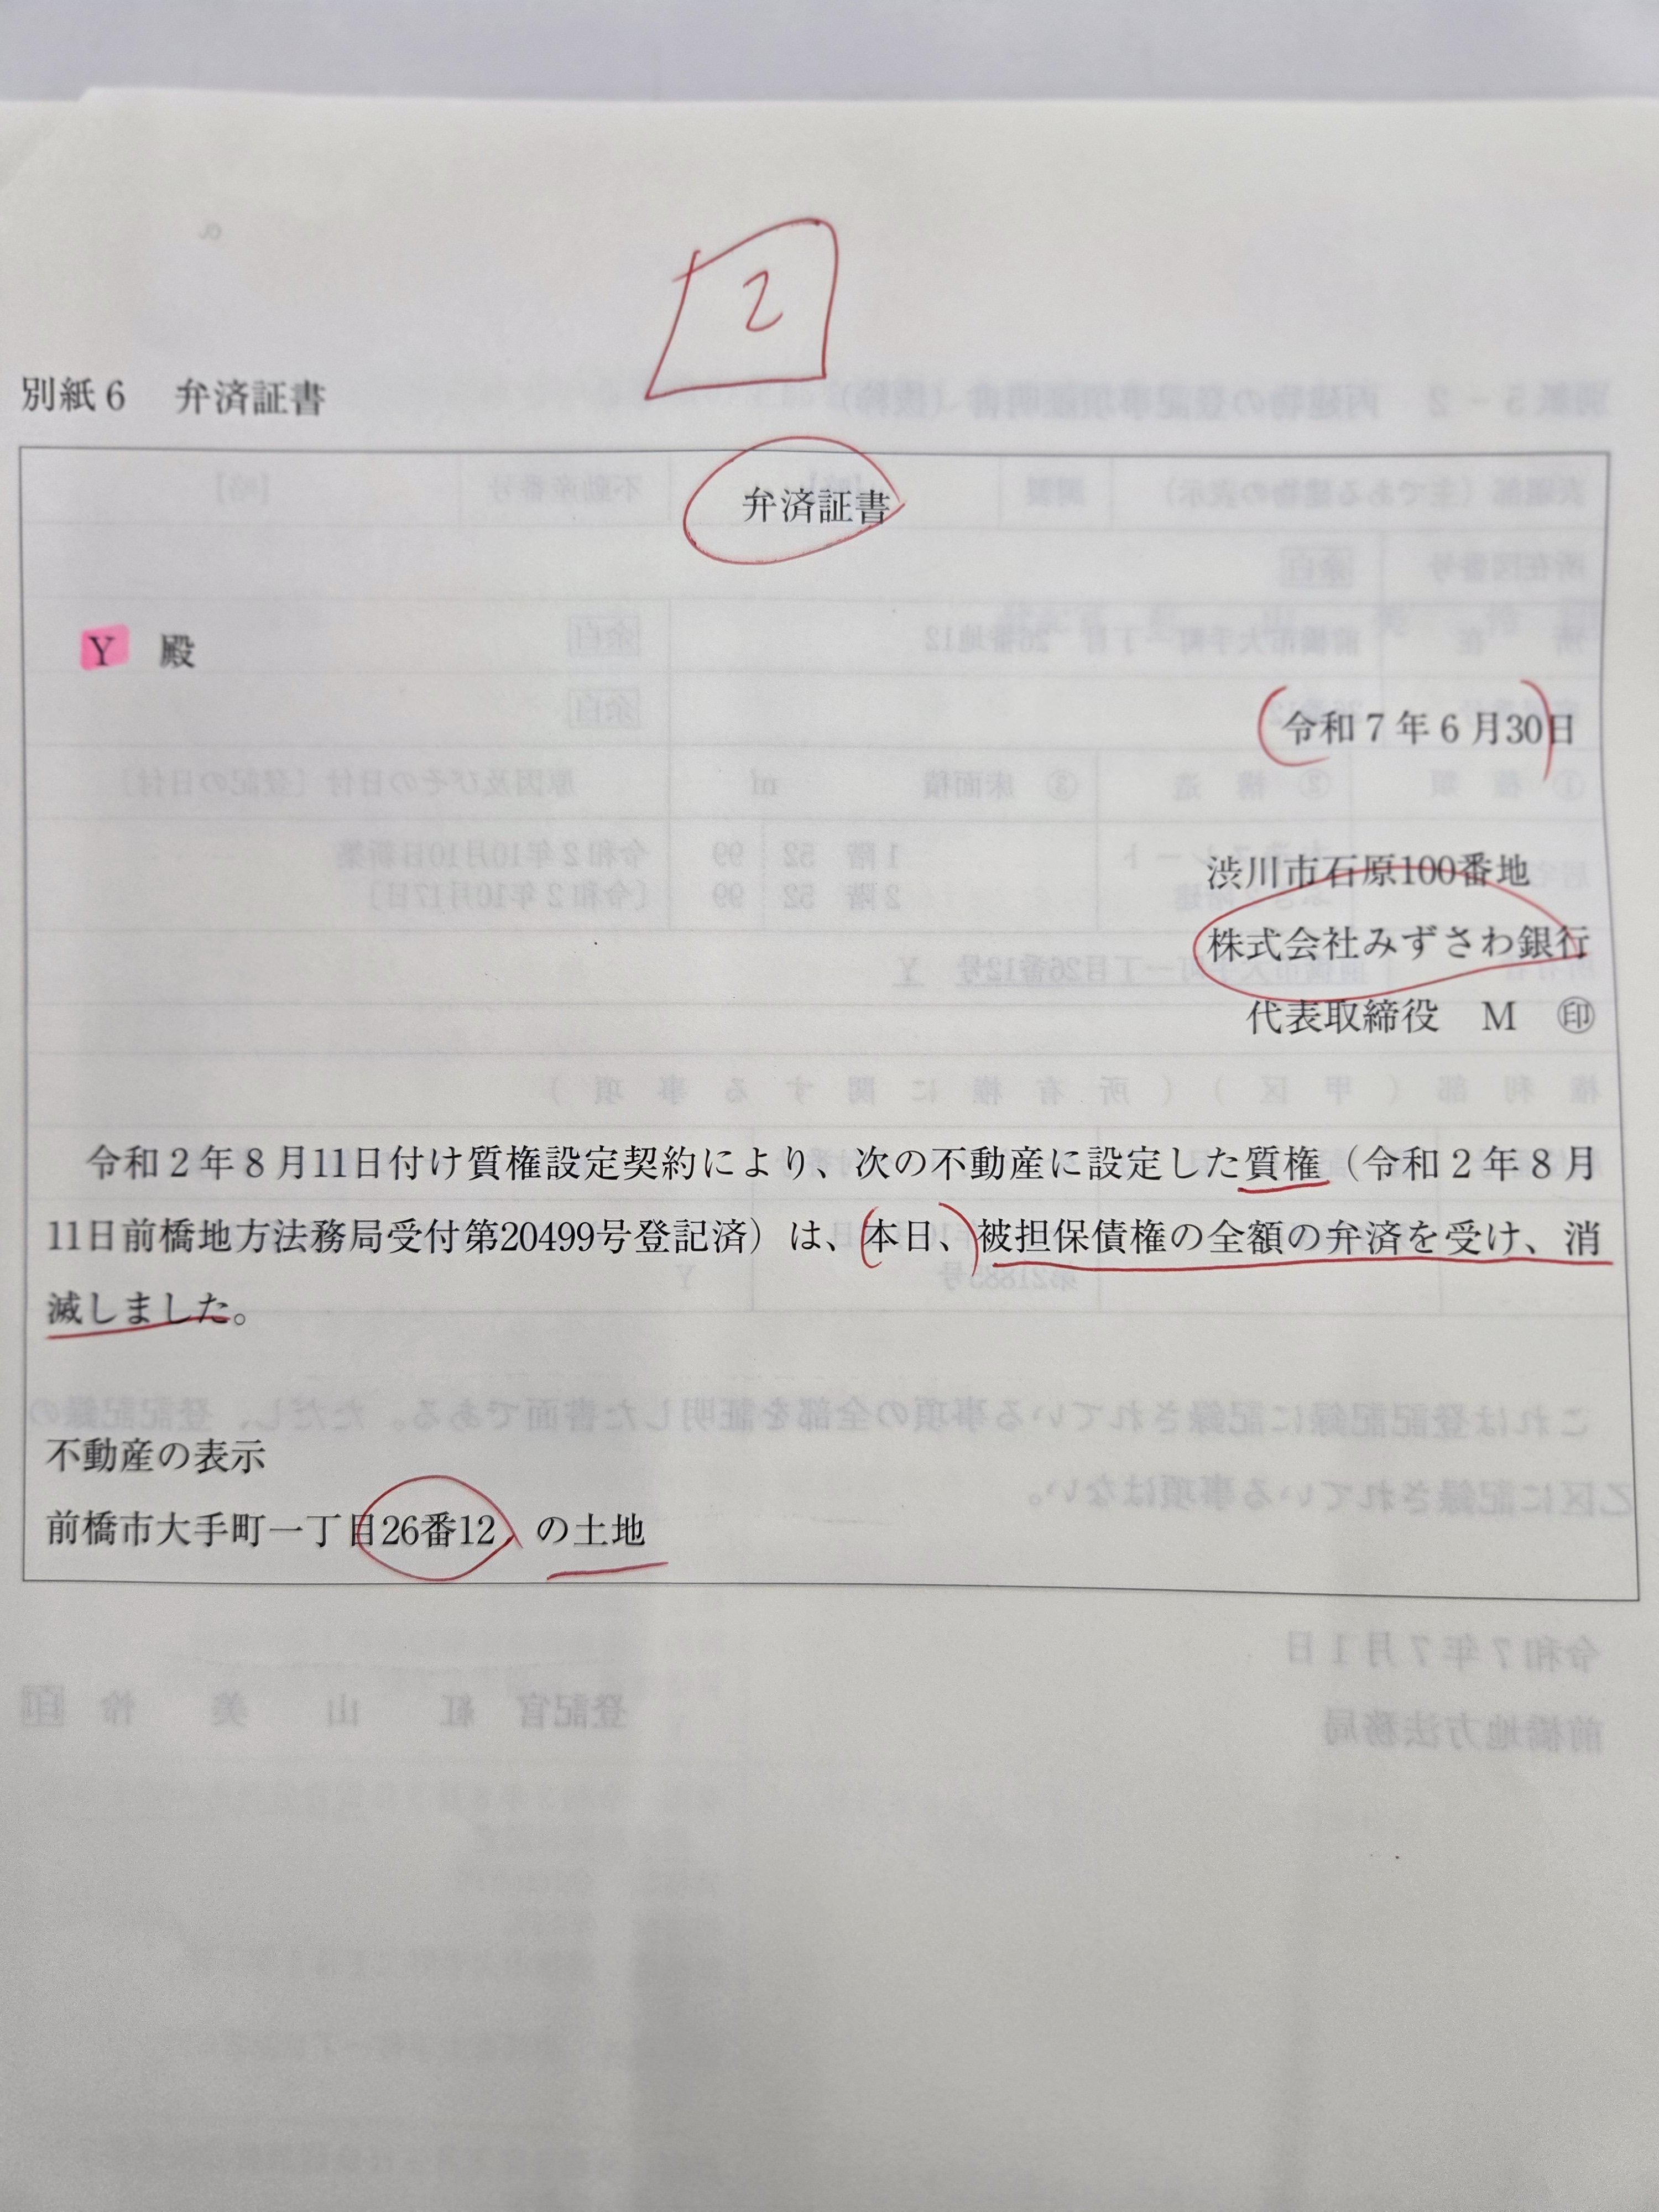 2
別紙6 弁済証書
弁済証書
Y 殿
令和7年6月30日
渋川市石原100番地
株式会社みずさわ銀行
代表取締役 M ㊞
令和2年8月11日付け質権設定契約により、次の不動産に設定した質権（令和2年8月
11日前橋地方法務局受付第20499号登記済）は、本日、被担保債権の全額の弁済を受け、消
滅しました。
不動産の表示
前橋市大手町一丁目26番12、の土地